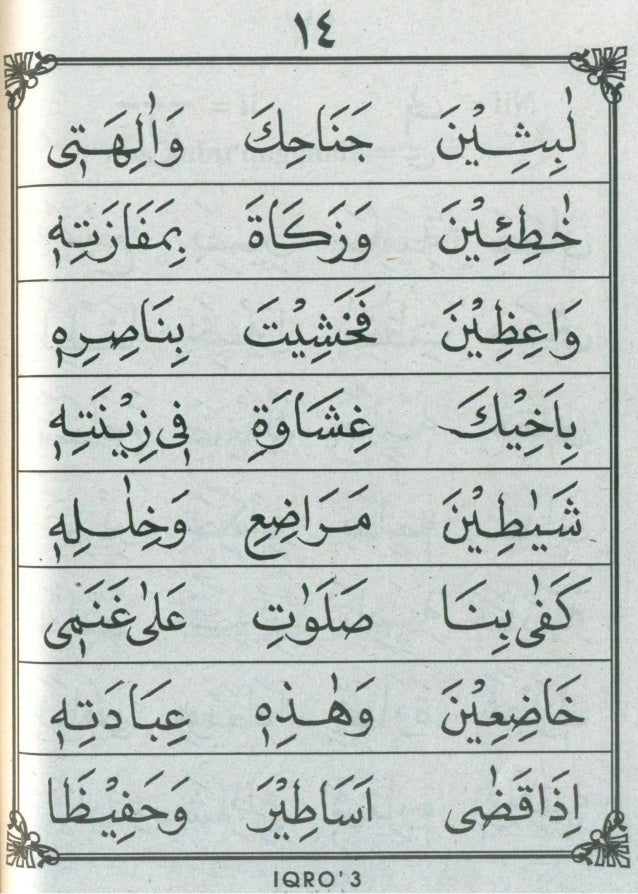 ١٤
لٰبِثِيْنَ حَنَاحِكَ وَاٰلِهَتِٖى
خٰطِئِيْنَ وَزَكَاةَ بِمَفَازَتِهٖ
وَاعِظِيْنَ فَخَشِيْتَ بِنَاصِرِهٖ
بِاَخِيْكَ غِشَاوَةِ فِٖى زِيْنَتِهٖ
شَيٰطِيْنَ مَرَاضِعِ وَخِلٰلِهٖ
كَفٰى بِنَا صَلَوٰتِ عَلٰى غَنَمِٖى
خَاضِعِيْنَ وَهٰذِهٖ عِبَادَتِهٖ
اِذَا قَضٰى اَسَاطِيْرَ وَحَفِيْظَا
IQRO' 3